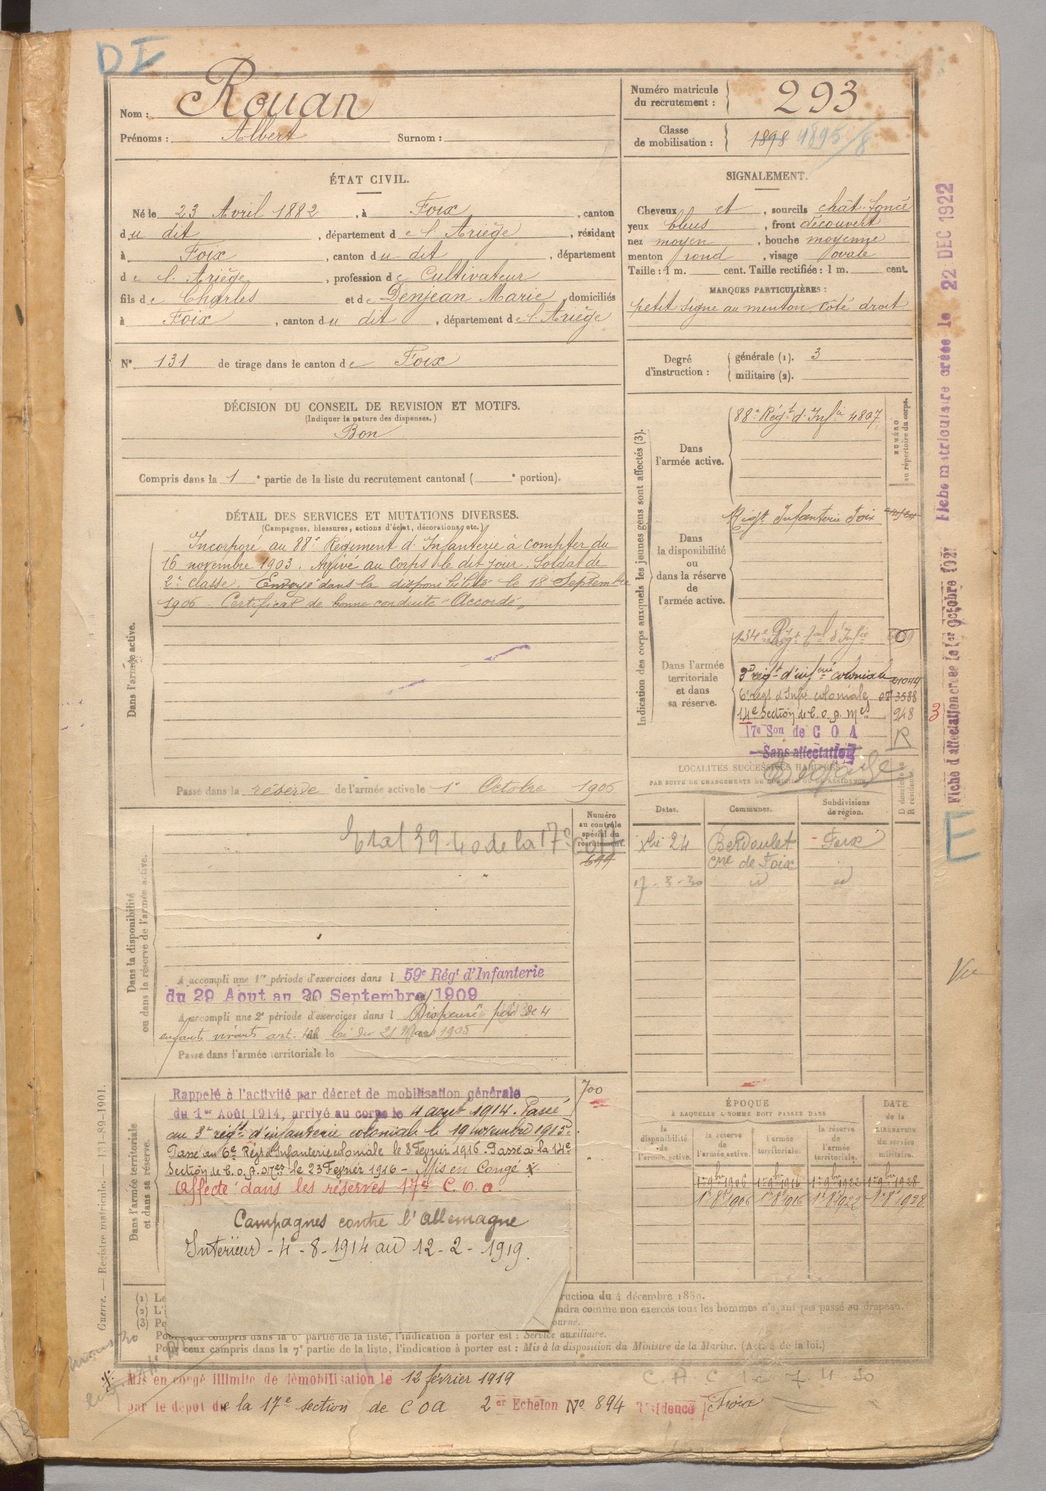 DI
Nom : Rouan
Prénoms : Albert Surnom :
Numéro matricule du recrutement : 293
Classe de mobilisation : 1898 1895/8
ÉTAT CIVIL.
Né le 23 Avril 1882, à Foix, canton
du dit, département de l'Ariège, résidant
à Foix, canton du dit, département
de l'Ariège, profession de Cultivateur
fils de Charles et de Denjean Marie, domiciliés
à Foix, canton du dit, département de l'Ariège
N° 131 de tirage dans le canton de Foix
SIGNALEMENT.
Cheveux et, sourcils chât. foncé
yeux bleus, front découvert
nez moyen, bouche moyenne
menton rond, visage ovale
Taille : 1 m. cent. Taille rectifiée : 1 m. cent.
MARQUES PARTICULIÈRES :
petit signe au menton côté droit
Degré d'instruction : générale (1). 3
militaire (2).
DÉCISION DU CONSEIL DE REVISION ET MOTIFS.
(Indiquer la nature des dispenses.)
Bon
Compris dans la 1e partie de la liste du recrutement cantonal ( e portion).
DÉTAIL DES SERVICES ET MUTATIONS DIVERSES.
(Campagnes, blessures, actions d'éclat, décorations, etc.)
Dans l'armée active.
Incorporé au 88e Régiment d'Infanterie à compter du
16 novembre 1903. Arrivé au Corps le dit jour. Soldat de
2e classe. Envoyé dans la disponibilité le 18 Septembre
1906. Certificat de bonne conduite Accordé.
Passé dans la réserve de l'armée active le 1er Octobre 1906
Indication des corps auxquels les jeunes gens sont affectés (3).
NUMÉRO au répertoire du corps.
Dans l'armée active.
88e Régt d'Infie 4897
Dans la disponibilité ou dans la réserve de l'armée active.
Régt Infanterie Foix
Dans l'armée territoriale et dans sa réserve.
134e Régt d'Infie
3e régt d'infrie coloniale 01044
6e Régt d'Infie coloniale 3588
14e Section de C.O.A. 248
17e Son de COA R
Sans affectation
LOCALITÉS SUCCESSIVES HABITÉES
Dates. Communes. Subdivisions de région.
24 Berdoulet Foix
cne de Foix
7-3-30 id id
Dans la disponibilité ou dans la réserve de l'armée active.
Numéro au contrôle spécial du recrutement.
644
A accompli une 1re période d'exercices dans l 59e Régt d'Infanterie
du 29 Aout au 20 Septembre 1909
A accompli une 2e période d'exercices dans l Dispensé père de 4
enfants vivants loi du 21 Mars 1905
Passé dans l'armée territoriale le
Dans l'armée territoriale et dans sa réserve.
700
Rappelé à l'activité par décret de mobilisation générale
du 1er Août 1914, arrivé au corps le 4 aout 1914. Passé
au 3e régt d'infanterie coloniale le 19 novembre 1915.
Passé au 6e Régt d'Infanterie coloniale le 8 Février 1916. Passé à la 14e
Section de C.O.A. le 23 Février 1916 - Mis en Congé x
Affecté dans les réserves 17e C.O.A.
Campagnes contre l'Allemagne
Intérieur - 4-8-1914 au 12-2-1919.
ÉPOQUE
À LAQUELLE L'HOMME DOIT PASSER DANS
DATE de la LIBÉRATION du service militaire.
la disponibilité de l'armée active.
la réserve de l'armée active.
l'armée territoriale.
la réserve de l'armée territoriale.
1er 8 1906 1er 8 1916 1er 8 1922 1er 8 1928
ruction du 4 décembre 1889.
ndra comme non exercés tous les hommes n'ayant pas passé au drapeau.
Pour ceux compris dans la 6e partie de la liste, l'indication à porter est : Service auxiliaire.
Pour ceux compris dans la 7e partie de la liste, l'indication à porter est : Mis à la disposition du Ministre de la Marine. (Art. 4 de la loi.)
x Mis en congé illimité de démobilisation le 13 février 1919
par le dépôt de la 17e section de COA 2er Echelon N° 894 Résidence Foix
Fiche matriculaire créée le 22 DEC 1922
Fiche d'affectation créée le 1er Octobre 1927
3
E
Vu
Guerre. — Registre matricule. — 131-89-1901.